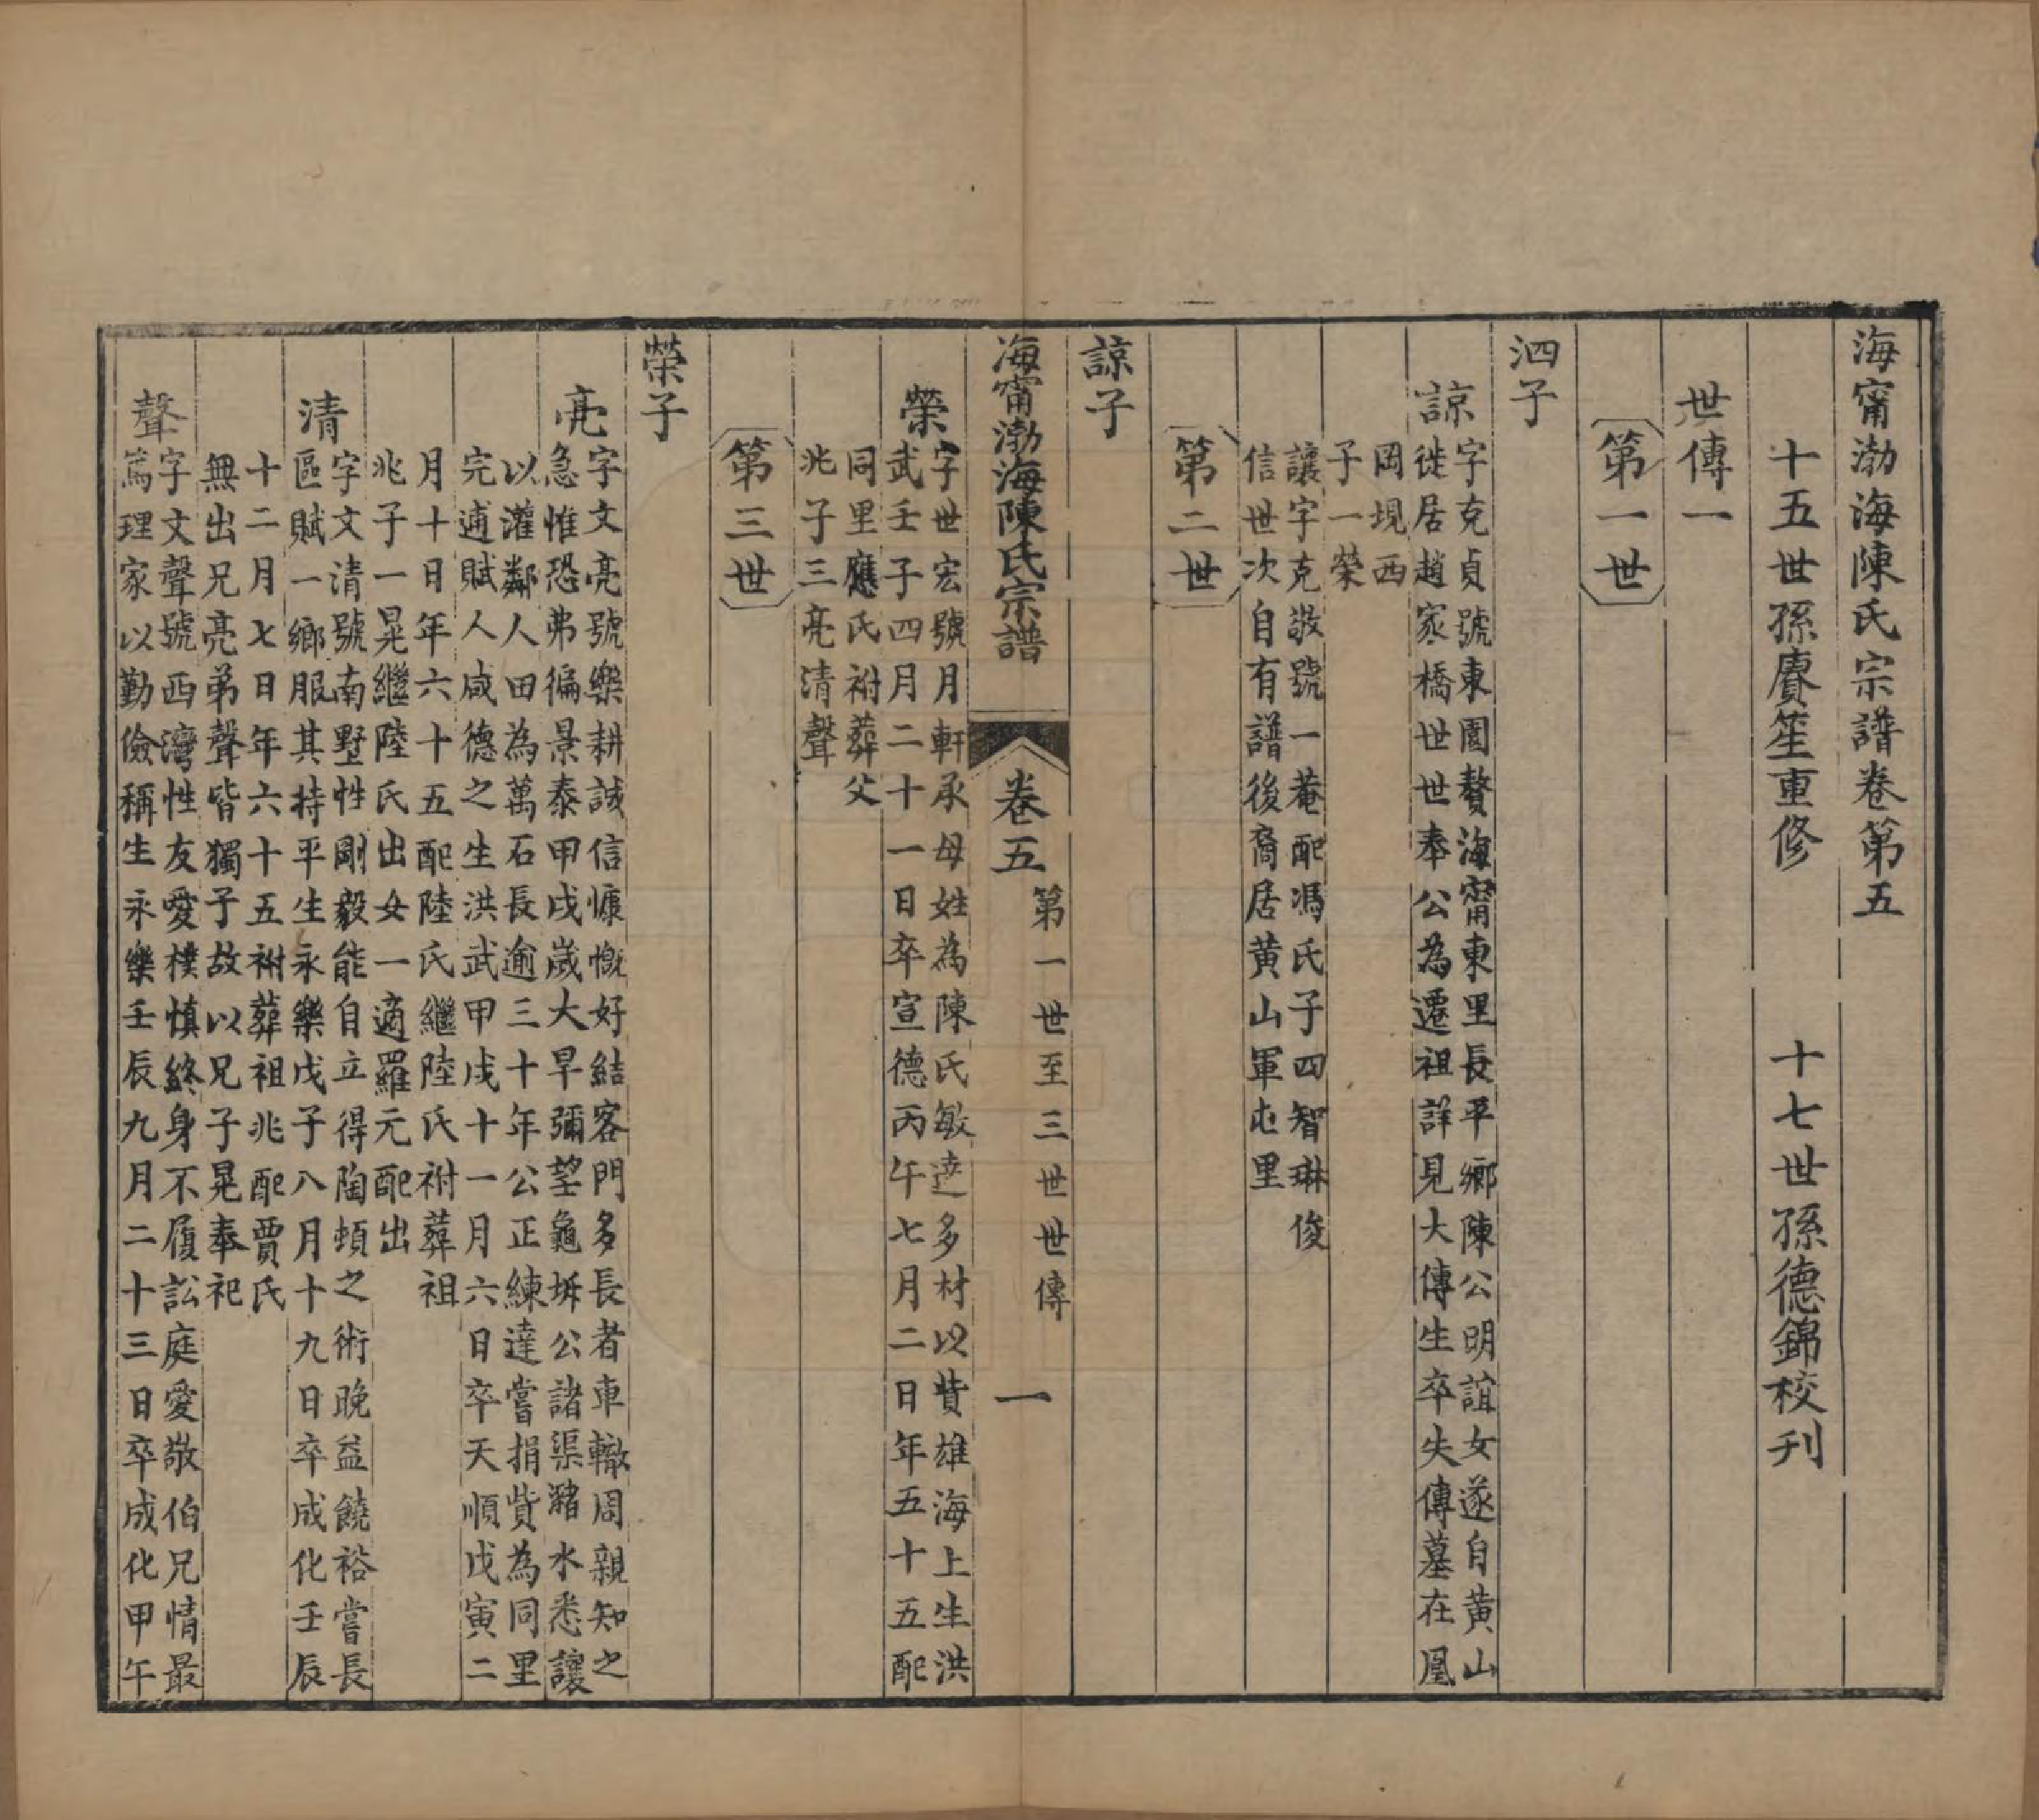 海甯渤海陳氏宗譜卷第五
十五世孫賡笙重修　十七世孫德錦校刊
世傳一
第一世
泗子
諒
字克貞號東園贅海甯東里長平鄉陳公明誼女遂自黃山
徙居趙家橋世世奉公為遷祖詳見大傳生卒失傳墓在鳳
岡垷西
子一榮
讓字克敬號一菴配馮氏子四智琳俊
信世次自有譜後裔居黃山軍屯里
第二世
諒子
海甯渤海陳氏宗譜
卷五
第一世至三世世傳
一
榮
字世宏號月軒承母姓為陳氏敏達多材以貲雄海上生洪
武壬子四月二十一日卒宣德丙午七月二日年五十五配
同里應氏祔葬父
兆子三亮清聲
第三世
榮子
亮
字文亮號樂耕誠信慷慨好結客門多長者車轍周親知之
急惟恐弗徧景泰甲戌歲大旱彌望龜坼公諸渠瀦水悉讓
以灌鄰人田為萬石長逾三十年公正練達嘗捐貲為同里
完逋賦人咸德之生洪武甲戌十一月六日卒天順戊寅二
月十日年六十五配陸氏繼陸氏祔葬祖
兆子一晃繼陸氏出女一適羅元配出
清
字文清號南墅性剛毅能自立得陶頓之術晚益饒裕嘗長
區賦一鄉服其持平生永樂戊子八月十九日卒成化壬辰
十二月七日年六十五祔葬祖兆配賈氏
無出兄亮弟聲皆獨子故以兄子晃奉祀
聲
字文聲號西灣性友愛樸慎終身不履訟庭愛敬伯兄情最
篤理家以勤儉稱生永樂壬辰九月二十三日卒成化甲午